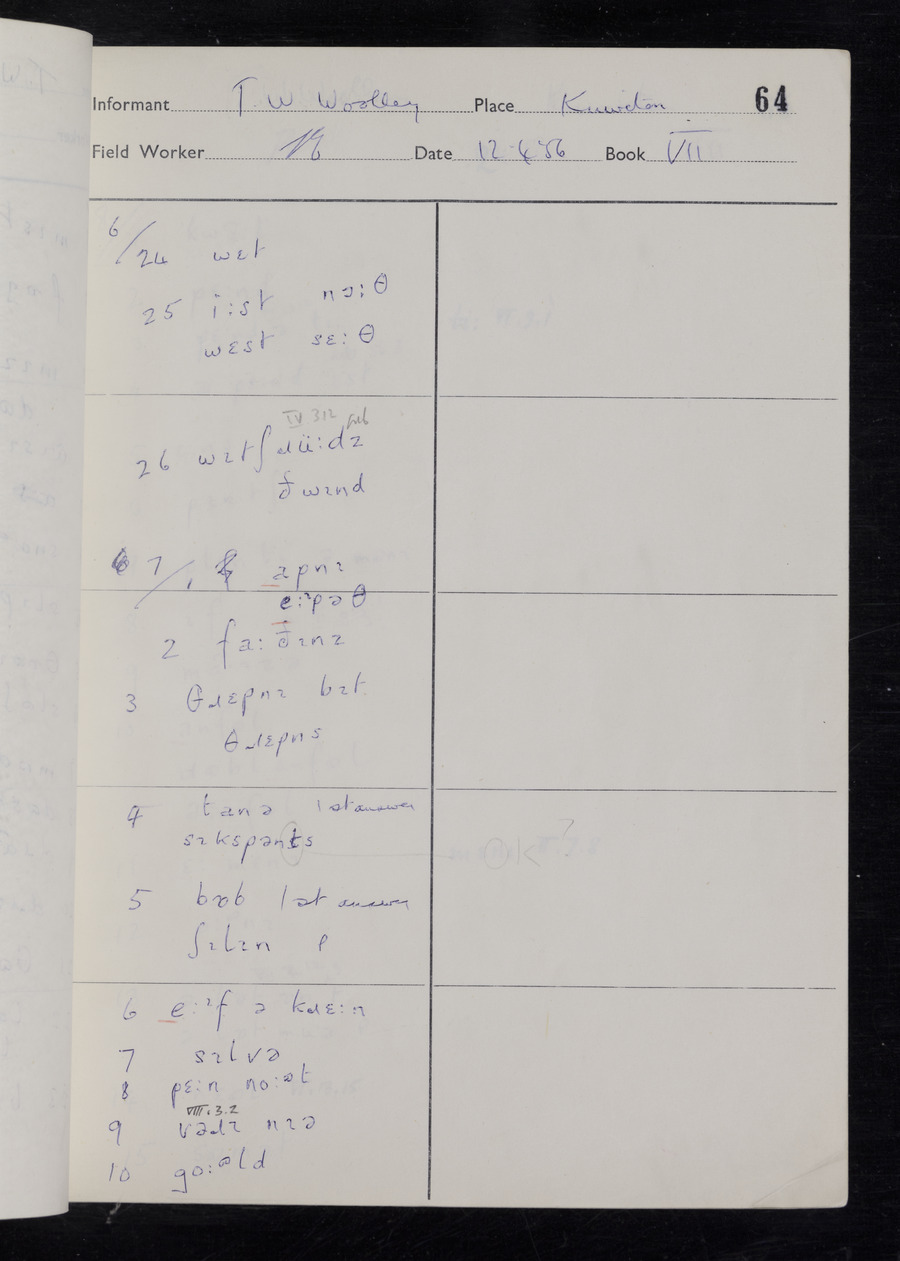 Informant T W Woolley Place Kniveton 64
Field Worker Date 12·4·56 Book VII
6/24 wɛt
25 i:st nɔ:θ
wɛst sɛ:θ
IV 312
26 wɪtʃ ɹü:dz
ð wɪnd
7/1 apnɪ
e:ɪpəθ
2 fa:ðɪnz
3 θɹɛpnɪ bɪt
θɹɛpns
4 tanə 1st answer
sɪkspənts
OK
5 bɒb 1st answer
ʃɪlɪn p
6 e:ɪf ə kɹɛ:n
7 sɪlvə
8 pɛ:n no:ət
VIII.3.2
9 vəɹɪ nɪə
10 go:əld